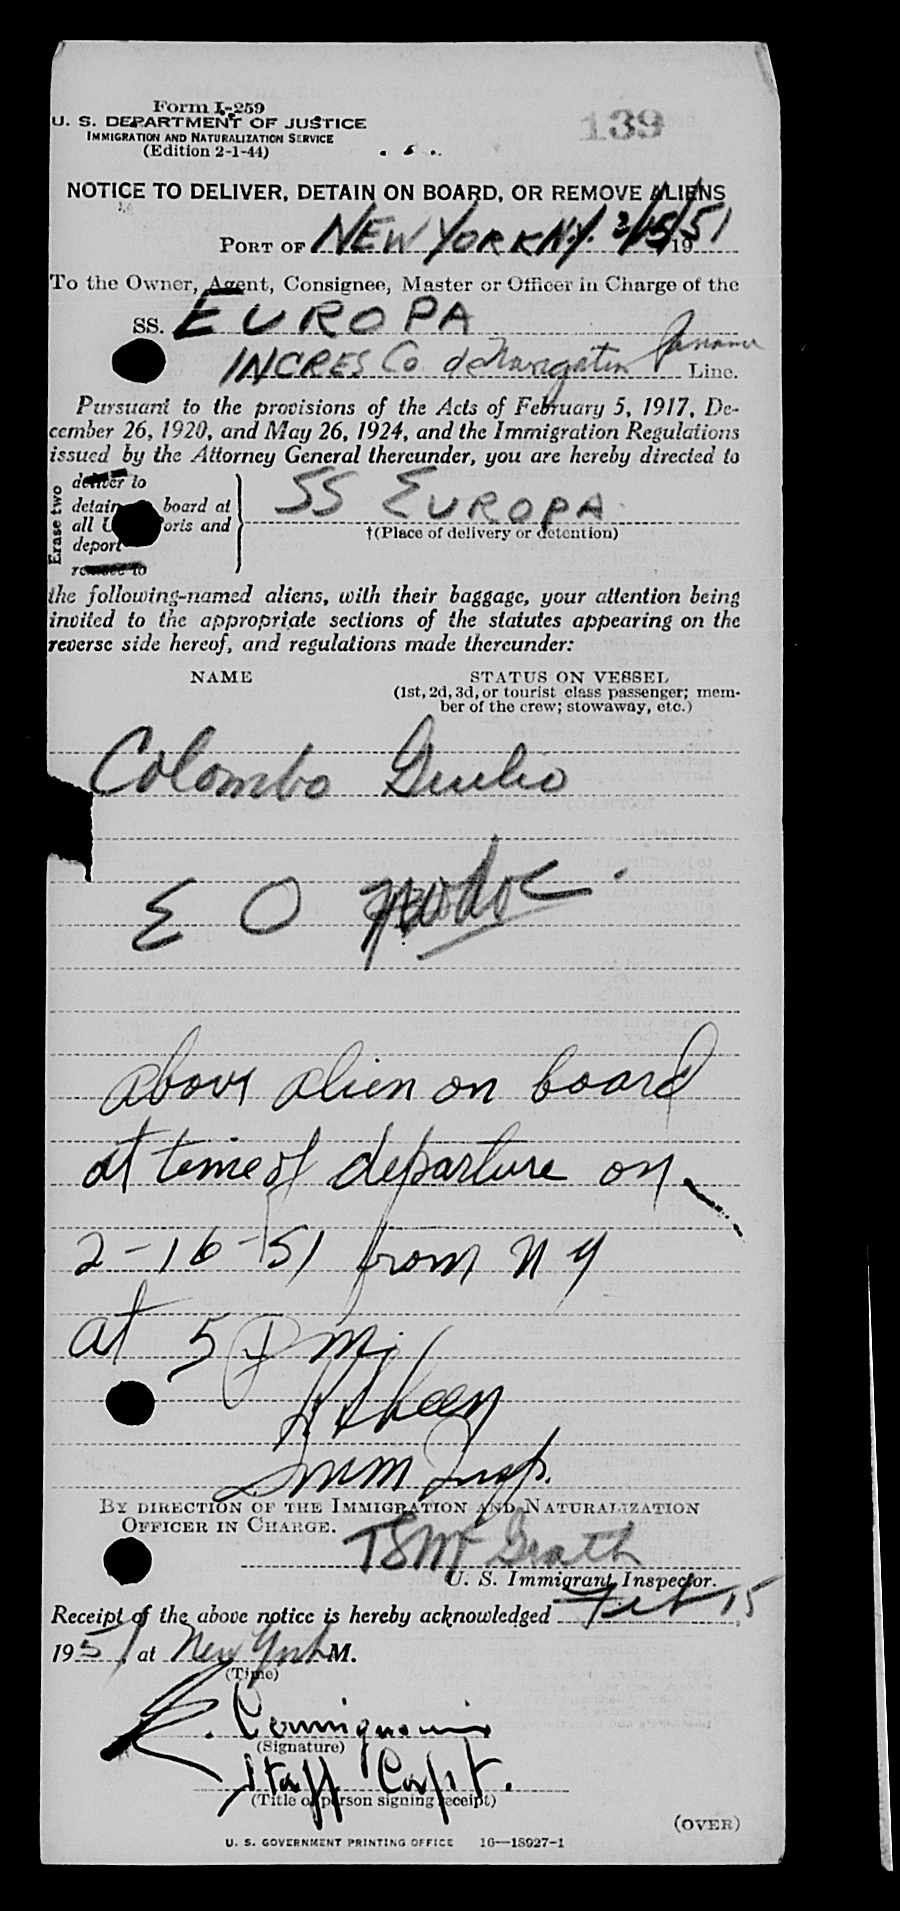 Form I-259
U. S. DEPARTMENT OF JUSTICE
IMMIGRATION AND NATURALIZATION SERVICE
(Edition 2-1-44)
139
NOTICE TO DELIVER, DETAIN ON BOARD, OR REMOVE ALIENS
PORT OF NEW YORK N.Y. 2/15/1951
To the Owner, Agent, Consignee, Master or Officer in Charge of the
SS. EUROPA
INCRES Co de Navigation Panama Line.
Pursuant to the provisions of the Acts of February 5, 1917, De-
cember 26, 1920, and May 26, 1924, and the Immigration Regulations
issued by the Attorney General thereunder, you are hereby directed to
Erase two
deliver to
detain board at
all ports and
deport
remove to
SS EUROPA
†(Place of delivery or detention)
the following-named aliens, with their baggage, your attention being
invited to the appropriate sections of the statutes appearing on the
reverse side hereof, and regulations made thereunder:
NAME STATUS ON VESSEL
(1st, 2d, 3d, or tourist class passenger; mem-
ber of the crew; stowaway, etc.)
Colombo Giulio
E O
above alien on board
at time of departure on
2-16-51 from N Y
at 5 P m.
Imm Insp.
BY DIRECTION OF THE IMMIGRATION AND NATURALIZATION
OFFICER IN CHARGE.
TS McGrath
U. S. Immigrant Inspector.
Receipt of the above notice is hereby acknowledged Feb 15,
1951, at New York M.
(Time)
(Signature)
Staff Capt.
(Title of person signing receipt)
(OVER)
U. S. GOVERNMENT PRINTING OFFICE 16—18927-1